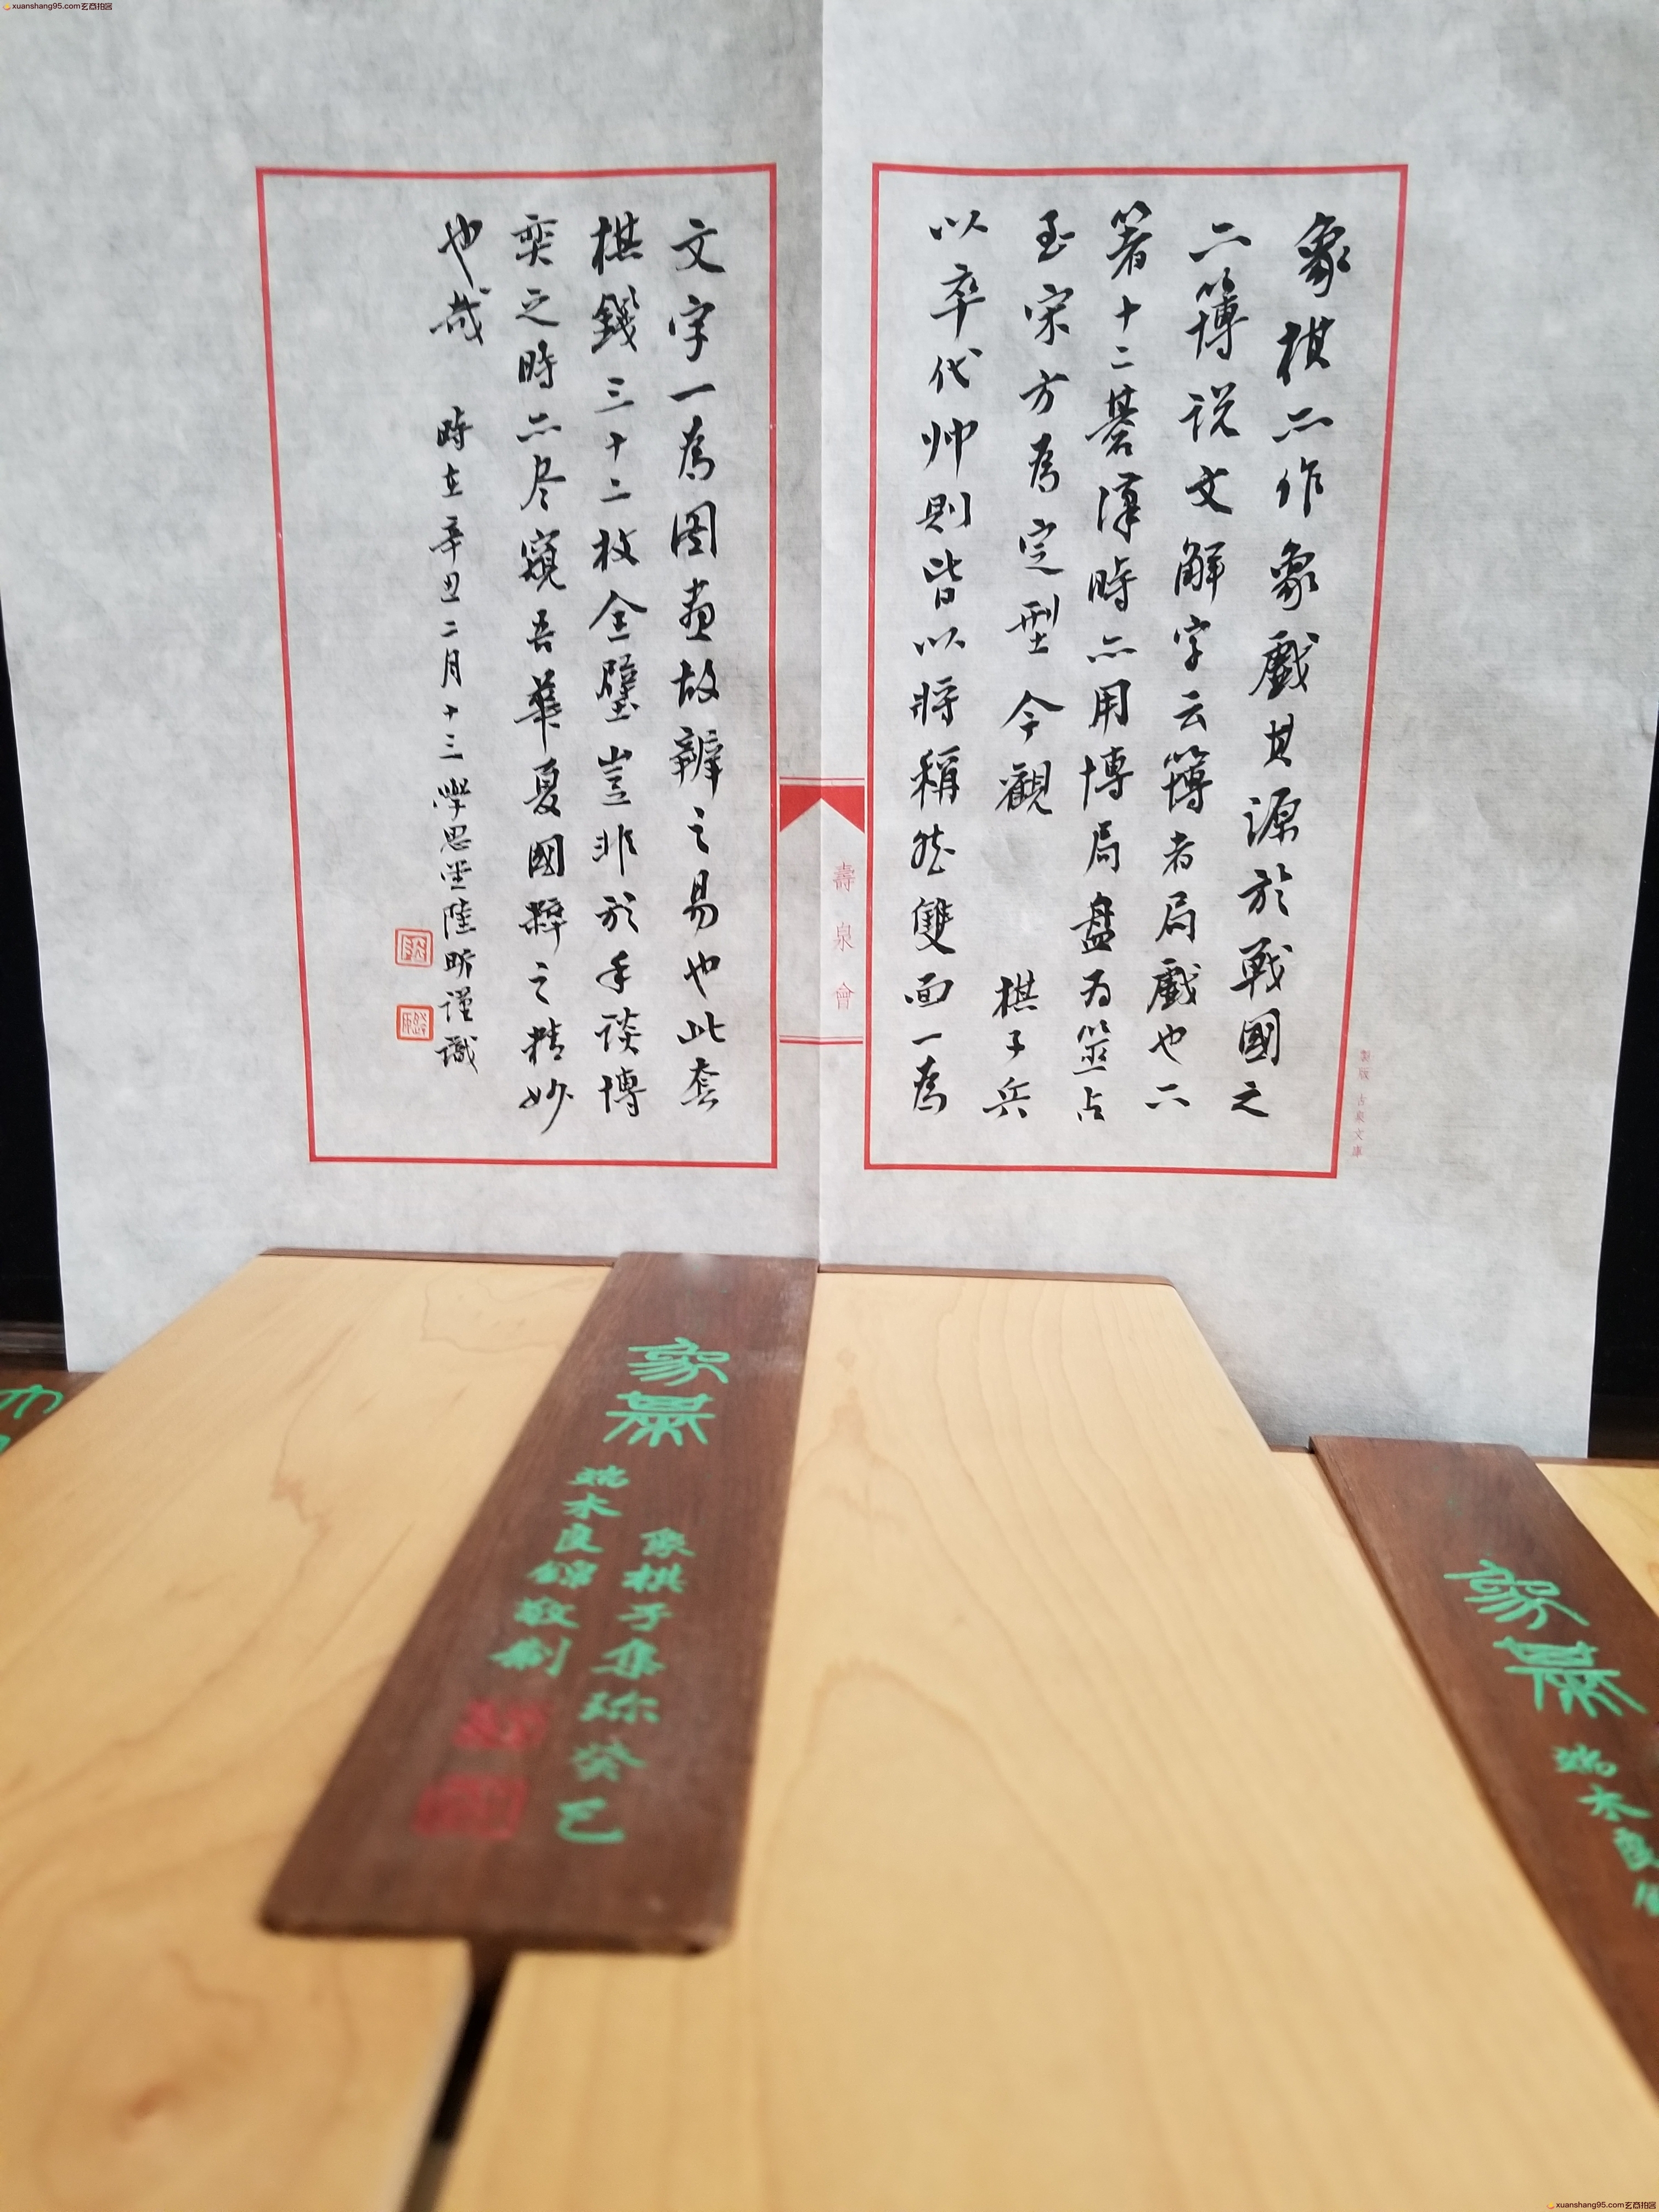 xuanshang95.com玄商拍图
象棋亦作象戲其源於戰國之
六簙説文解字云簙者局戲也六
箸十二棊漢時亦用博局盘为筮占
至宋方為定型今觀棋子兵
以卒代帅則皆以将稱然雙面一為
文字一為图畫故辨之易也此套
棋錢三十二枚全璧豈非於手谈博
奕之時亦尽窺吾華夏國粹之精妙
也哉
時在辛丑二月十三學思堂陸昕谨識
壽泉會
製版 古泉文庫
象棊
象棋子集珍癸巳
端木良錦敬制
象棊
端木良
xuanshang95.com玄商拍图